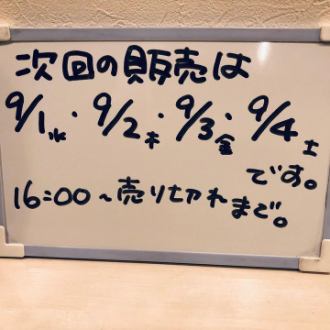 次回の販売は
9/1水・9/2木・9/3金・9/4土
です。
16:00~売り切れまで。